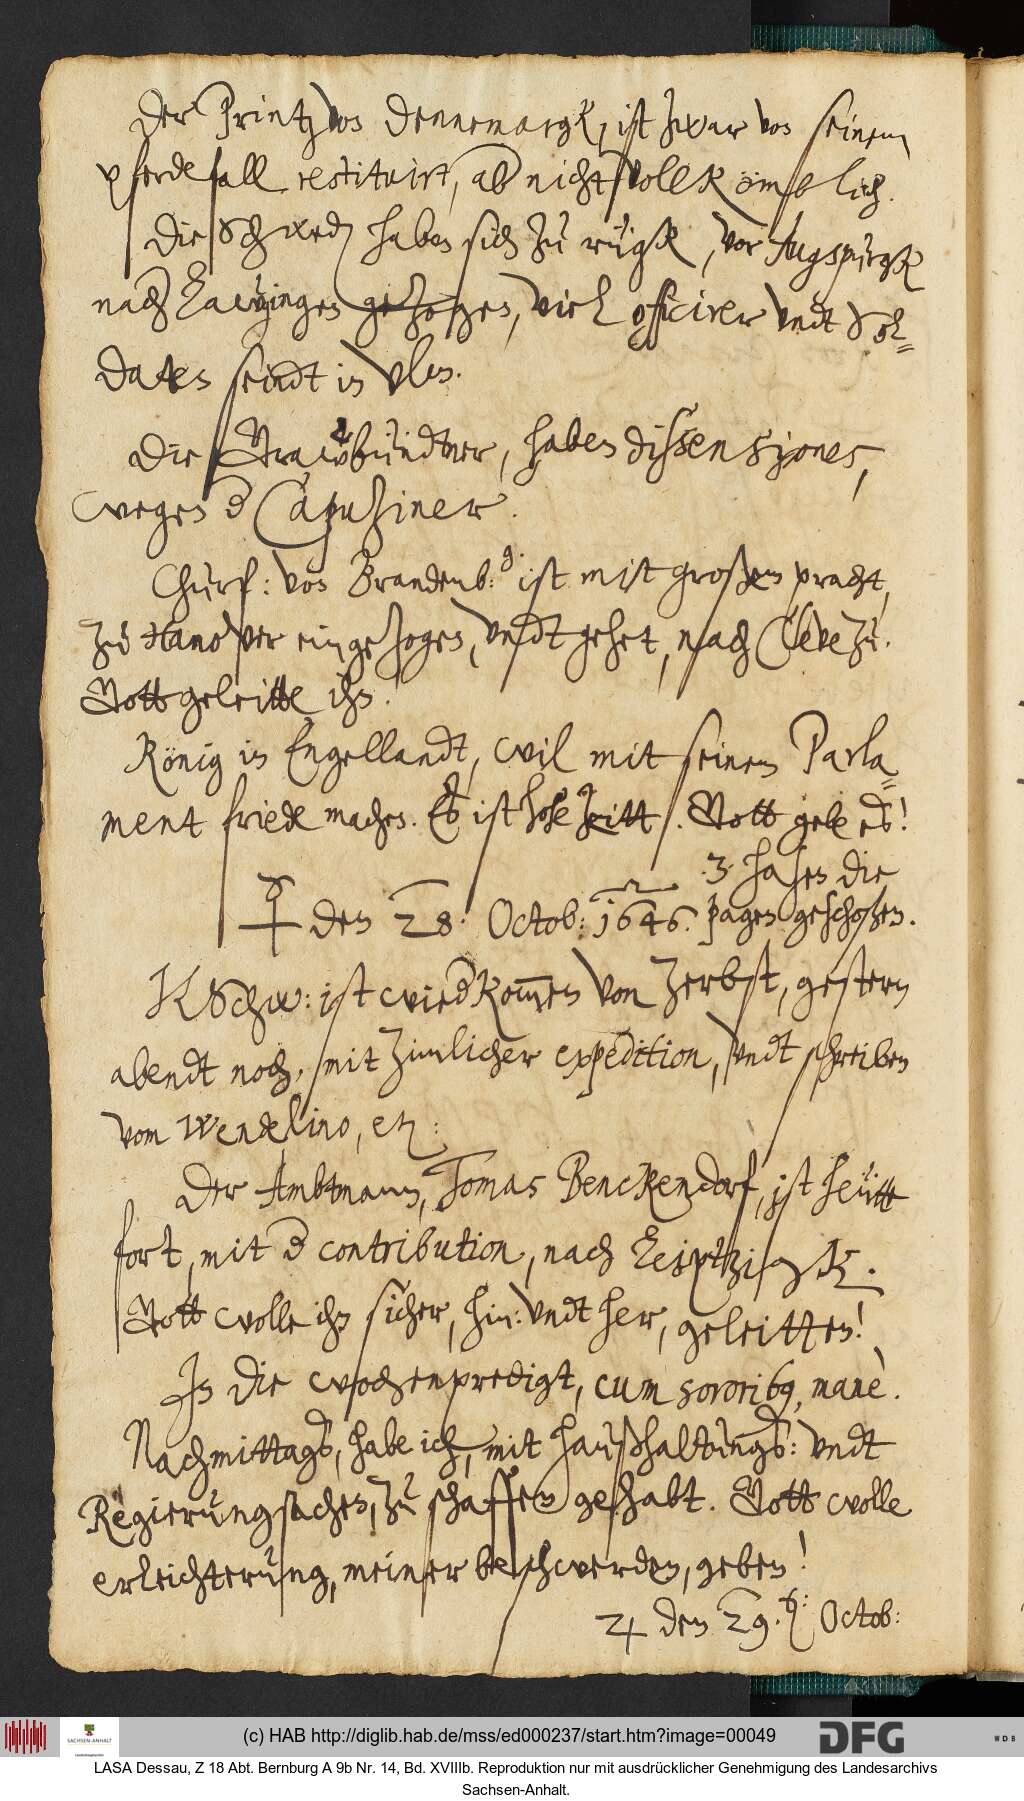 Der Printz von Dennemargk, ist zwar von seinem
pferdefall restituirt, aber nicht vollkömblich.
Die Schweden haben sich zu rügk, vor Augspurgk
nach Lawingen gezogen, viel officirer undt Sol=
daten seindt in Ulm.
Die Grawbündtner, haben dissensiones,
wegen der Capuziner.
Churf: von Brandenb:g ist mit großem pracht,
zu Hanover eingezogen, undt gehet, nach Cleve zu.
Gott geleitte ihn.
König in Engellandt, wil mit seinem Parla=
ment friede machen. Es ist hohe zeitt. Gott gebe es!
3 hasen die
☿ den 28. Octob: 1646. pagen geschoßen.
KSchw: ist wiederkommen von Zerbst, gestern
abendt noch, mit zimlicher expedition, undt schreiben
vom Wendelino, etc:
Der Ambtmann, Tomas Benckendorf, ist heütte
fort, mit der contribution, nach Leiptzigk.
Gott wolle ihn sicher, hin: undt her, geleitten!
In die wochenpredigt, cum sororibus, manè.
Nachmittags, habe ich, mit haußhaltungs: undt
Regierungsachen, zu schaffen gehabt. Gott wolle
erleichterung, meiner beschwerden, geben!
♃ den 29. Octob:
(c) HAB http://diglib.hab.de/mss/ed000237/start.htm?image=00049
SACHSEN-ANHALT
DFG
WDB
LASA Dessau, Z 18 Abt. Bernburg A 9b Nr. 14, Bd. XVIIIb. Reproduktion nur mit ausdrücklicher Genehmigung des Landesarchivs
Sachsen-Anhalt.